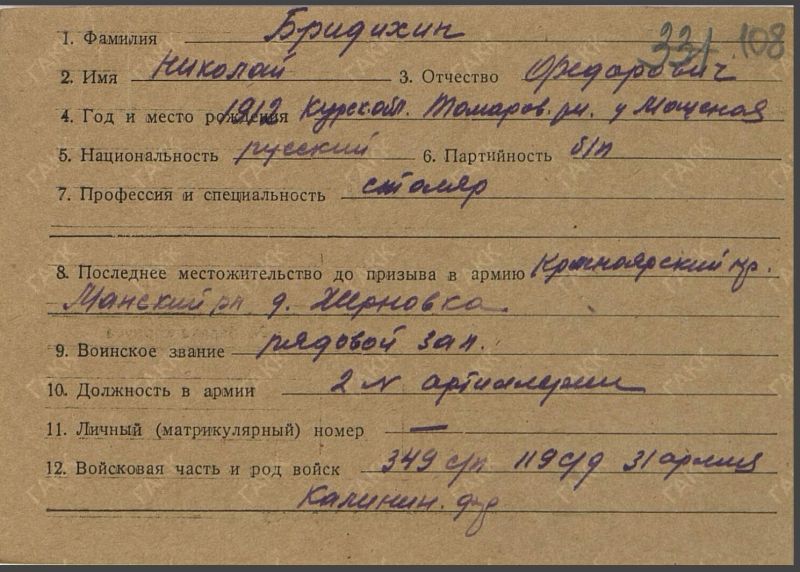 331 108
1. Фамилия Бридихин
2. Имя Николай 3. Отчество Федарович
4. Год и место рождения 1912 Курск обл. Томаров. рн.
5. Национальность русский 6. Партийность б/п
7. Профессия и специальность столяр
8. Последнее местожительство до призыва в армию Красноярский кр.
Манский рн. д. Жерновка
9. Воинское звание рядовой зап.
10. Должность в армии 2 N артиллерии
11. Личный (матрикулярный) номер —
12. Войсковая часть и род войск 349 с/п 119 с/д 31 армия
Калинин.